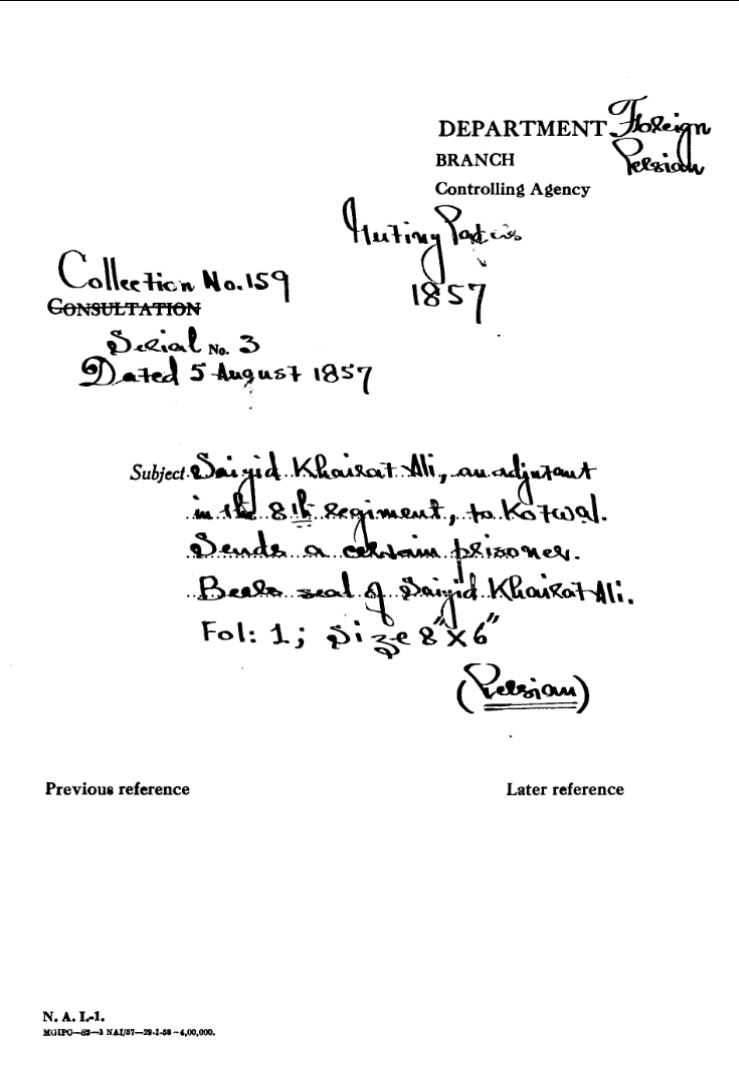 DEPARTMENT Foreign
BRANCH Persian
Controlling Agency
Mutiny Papers
1857
Collection No. 159
CONSULTATION
Serial No. 3
Dated 5 August 1857
Subject Saiyid Khairat Ali, an adjutant
in the 8th regiment, to Kotwal.
Sends a certain prisoner.
Bears seal of Saiyid Khairat Ali.
Fol: 1; Size 8"X6"
(Persian)
Previous reference Later reference
N. A. I.-1.
MGIPC—S2—3 NAI/57—29-1-58—4,00,000.